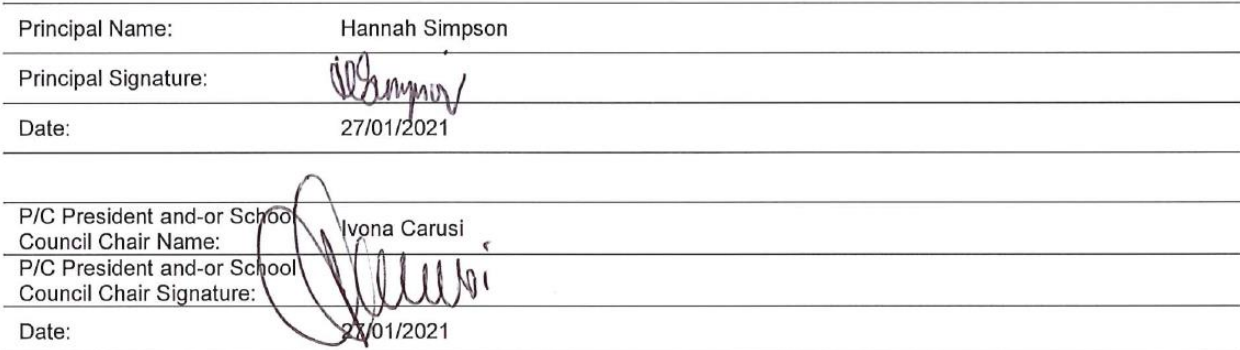 Principal Name: Hannah Simpson
Principal Signature: HSimpson
Date: 27/01/2021
P/C President and-or School
Council Chair Name: Ivona Carusi
P/C President and-or School
Council Chair Signature:
Date: 27/01/2021